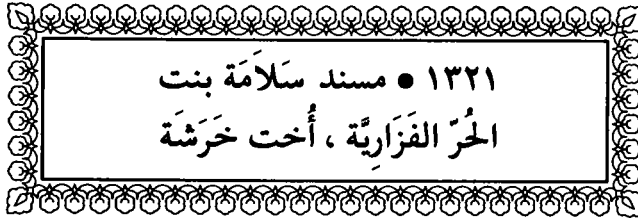 ١٣٢١ • مسند سَلاَمَة بنت
الحُرّ الفَزَارِيَّة ، أُخت خَرَشَة